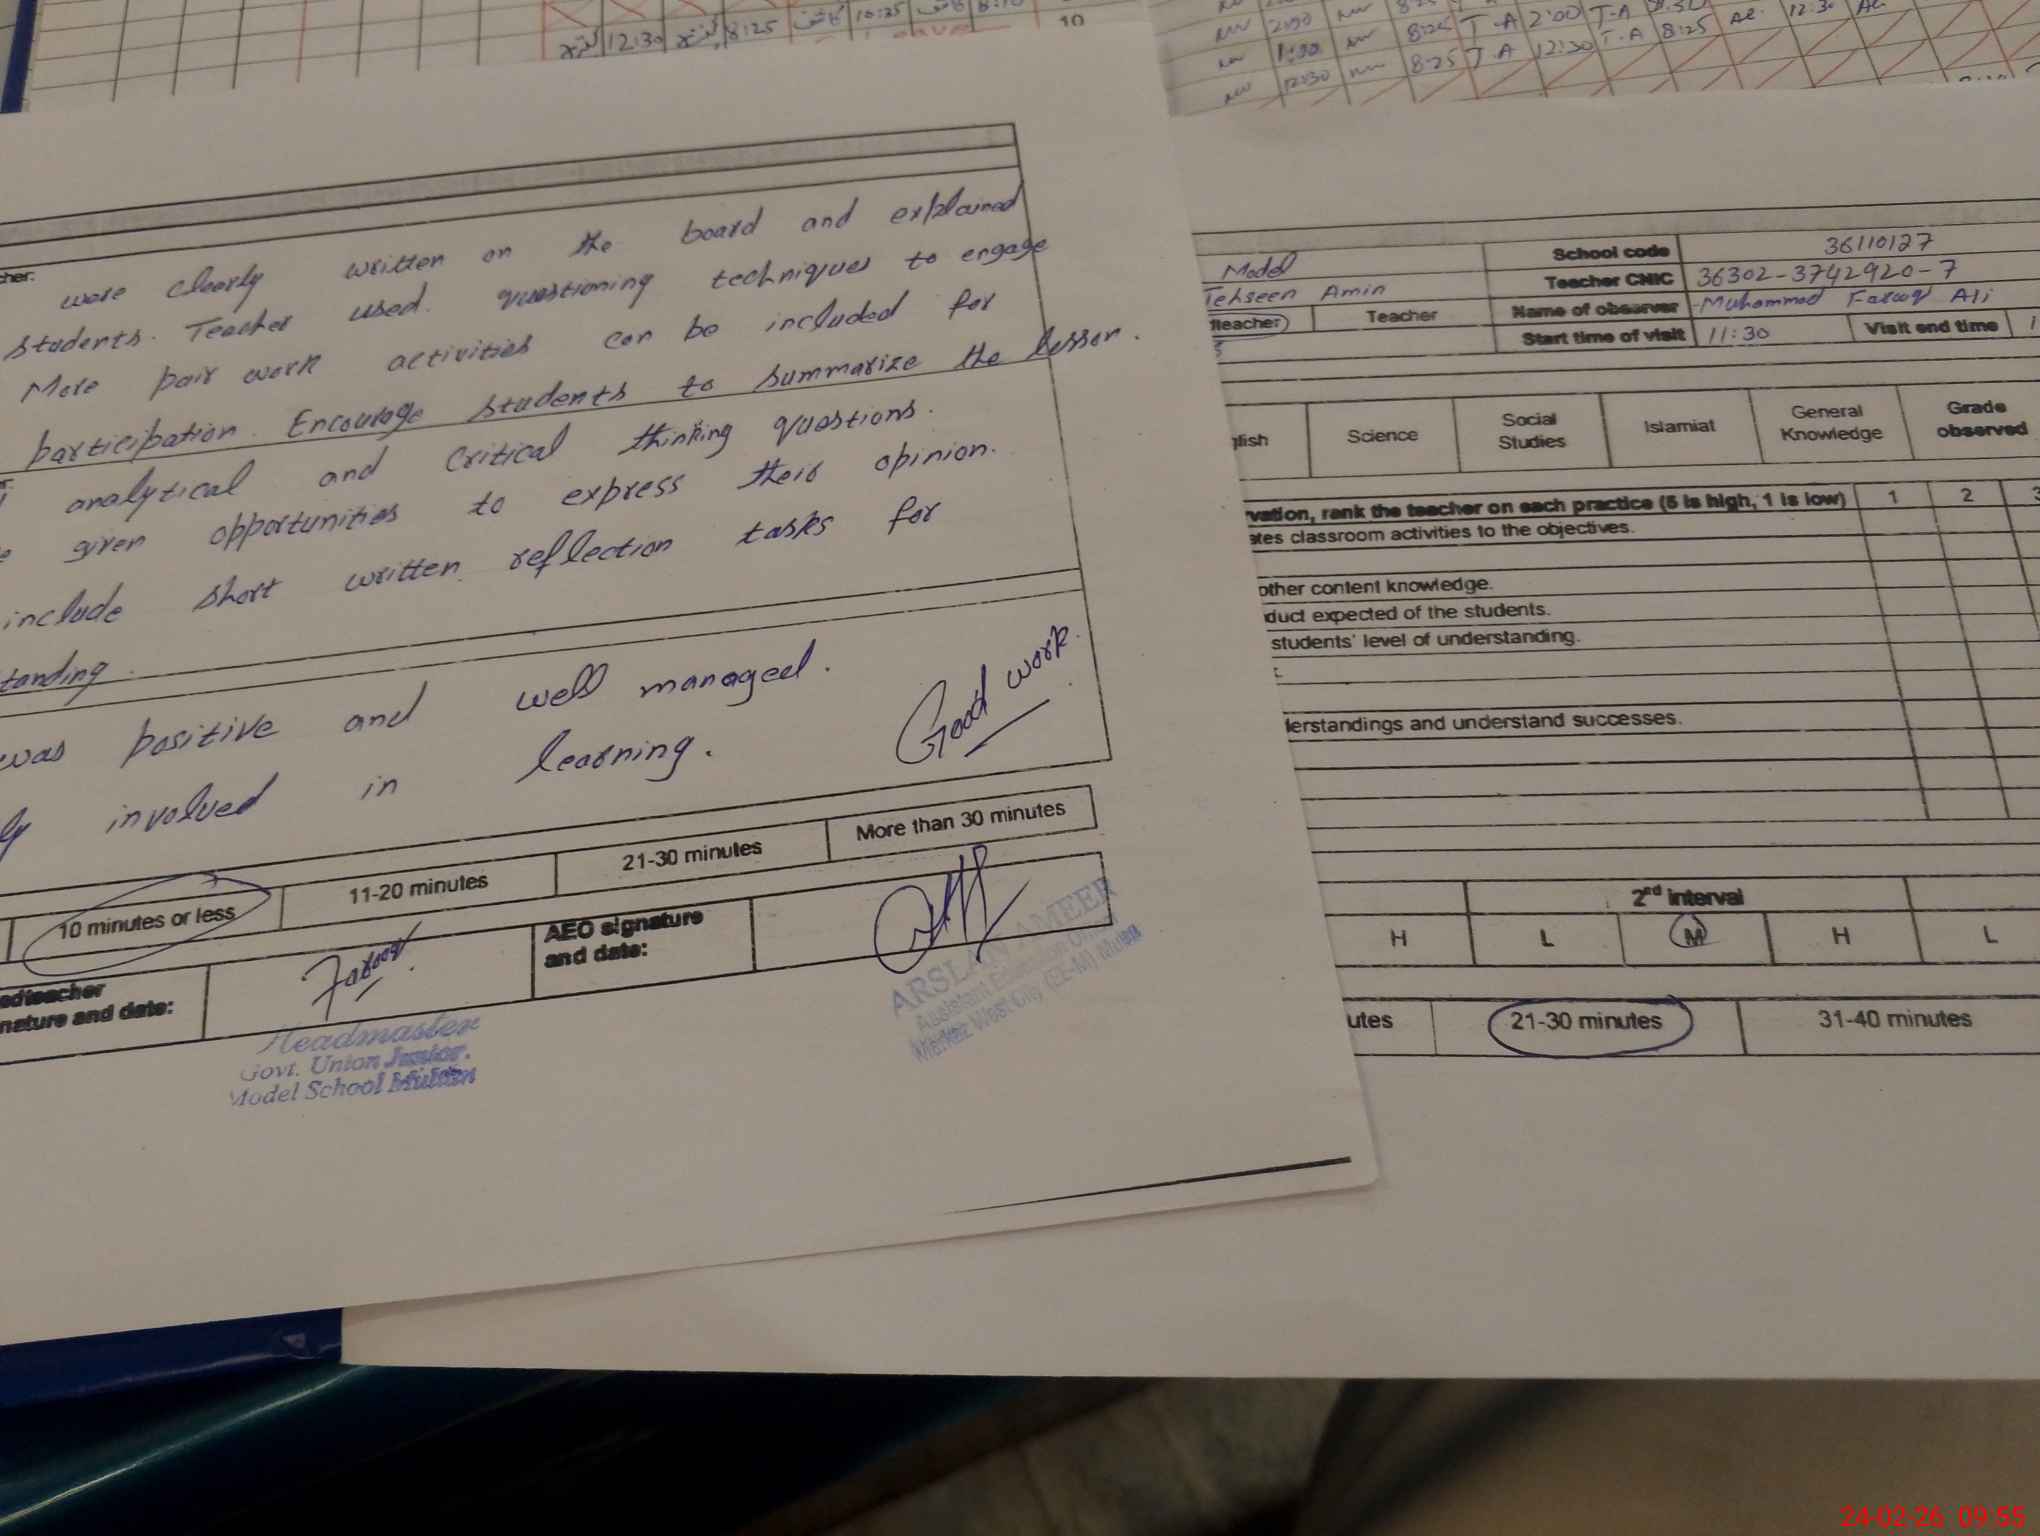 12:30 8:25 10:35
10
2:00 8:25 T.A 2:00 T.A
1:30 8:25 T.A 12:30 T.A 8:25 Ae. 12:30 Ae.
12:30
cher:
were clearly written on the board and explained
students. Teacher used. questioning techniques to engage
More pair work activities can be included for
participation. Encourage students to summarize the lesson.
analytical and critical thinking questions.
given opportunities to express their opinion.
include short written reflection tasks for
tanding.
was positive and well managed.
ly involved in learning.
Good work.
10 minutes or less 11-20 minutes 21-30 minutes More than 30 minutes
edteacher
nature and date:
Farooq
AEO signature
and date:
Headmaster
Govt. Union Junior.
Model School Multan
ARSLAN AMEER
Assistant Education Officer
Markaz West City (EE-M) Multan
Model
School code 36110127
Tehseen Amin
Teacher CNIC 36302-3742920-7
teacher Teacher
Name of observer Muhammad Farooq Ali
Start time of visit 11:30 Visit end time 1
glish Science Social Studies Islamiat General Knowledge Grade observed
vation, rank the teacher on each practice (5 is high, 1 is low) 1 2 3
ates classroom activities to the objectives.
other content knowledge.
duct expected of the students.
students' level of understanding.
derstandings and understand successes.
2nd interval
H L M H L
utes 21-30 minutes 31-40 minutes
24-02-26 09:55